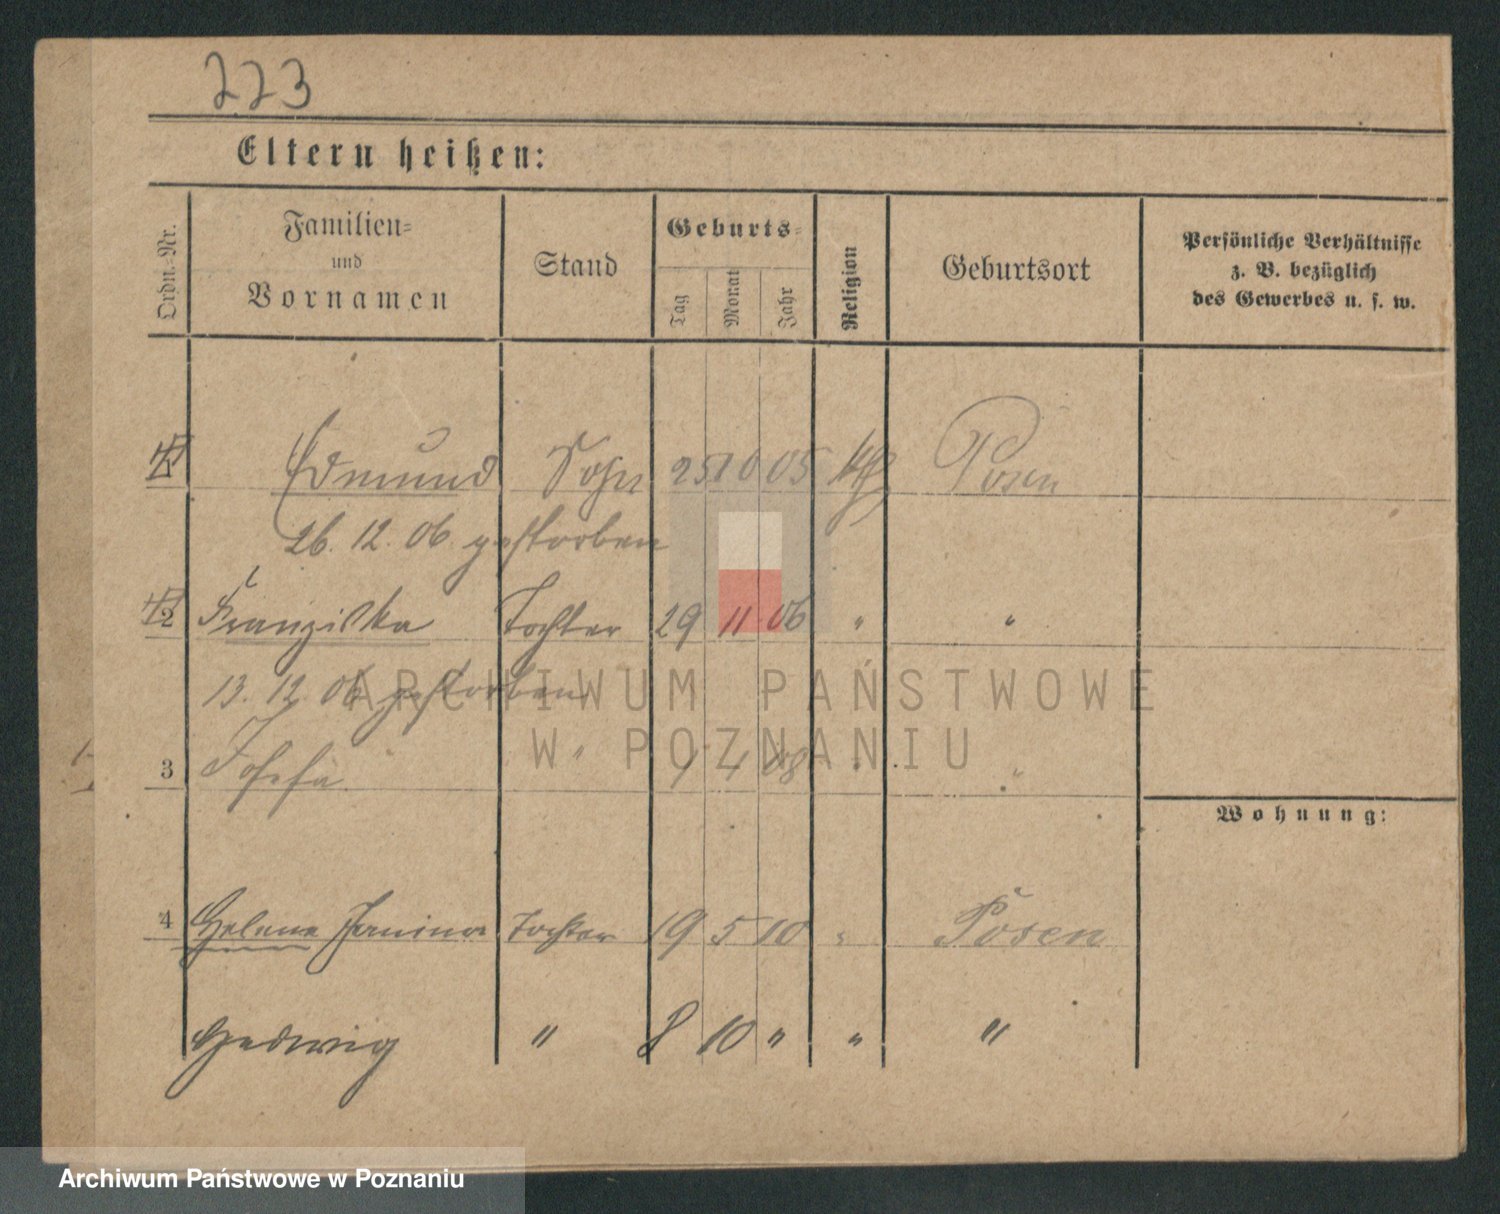 223
Eltern heißen:
Ordn.-Nr.
Familien-
und
Vornamen
Stand
Geburts-
Tag
Monat
Jahr
Religion
Geburtsort
Persönliche Verhältnisse
z. B. bezüglich
des Gewerbes u. s. w.
1 Edmund Sohn 25 10 05 kth Posen
26. 12. 06 gestorben
2 Franziska Tochter 29 11 06 " "
13. 12 06 gestorben
3 Josefa " 1 08 " "
Wohnung:
4 Helene Janina Tochter 19 5 10 " Posen
Hedwig " 8 10 " " "
ARCHIWUM PAŃSTWOWE
W POZNANIU
Archiwum Państwowe w Poznaniu